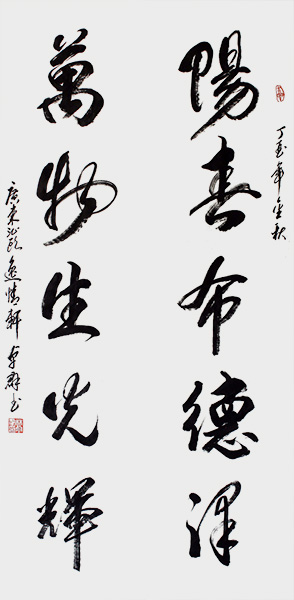 丁亥年金秋
陽春布德澤
萬物生光輝
廣東汕頭逸情軒卓群书